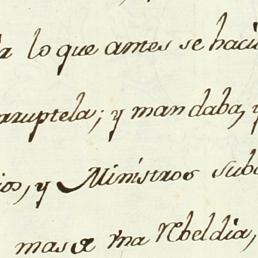 lo que antes se hací
aruptela; y mandaba, y
ios, y Ministros sub
mas a vna rebeldia,